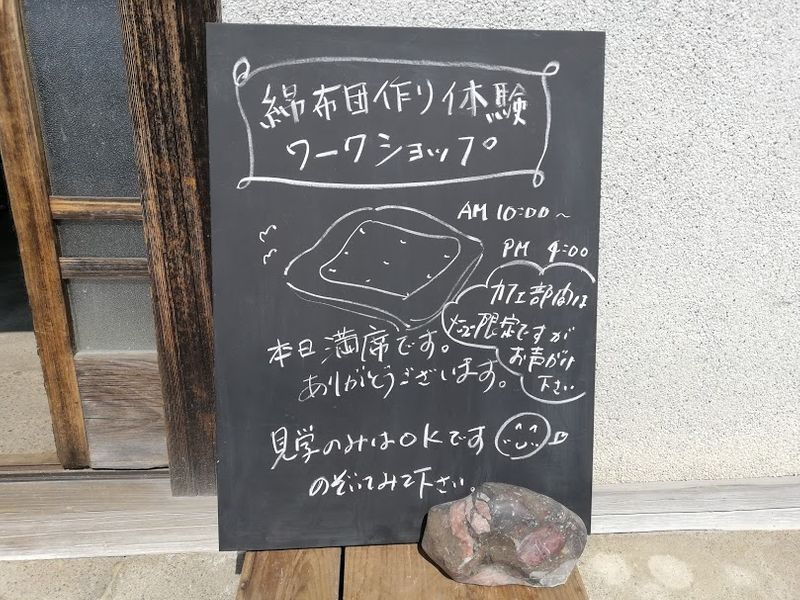 綿布団作り体験
ワークショップ
AM 10:00～
PM 4:00
カフェ部門は
メニュー限定ですが
お声がけ
下さい
本日満席です。
ありがとうございます。
見学のみはOKです
のぞいてみて下さい。